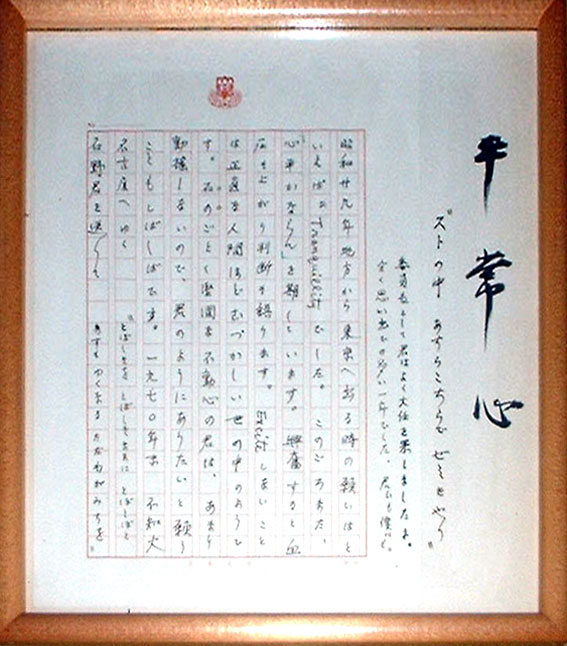 平常心
ストの中 あちらこちらで ゼミをやり
委員長として君はよく大任を果しましたよ。
全く思い出での多い一年でした、君にも僕にも。
昭和廿九年地方から東京へ出る時の願いはと
いえばTranquilityでした。このごろまた、
「心平かならん」を期しています。興奮すると血
圧も上がり判断を誤ります。Exciteしないこと
は正直な人間ほどむづかしい世の中のようで
す。石のごとく堅固な不動心の君は、あまり
動揺しないので、君のようにありたいと願う
こともしばしばです。一九七〇年末 不知火
名古屋へゆく
石野君を送りて
"とぼしきを とぼしき者に
あすもゆく わがみちを"